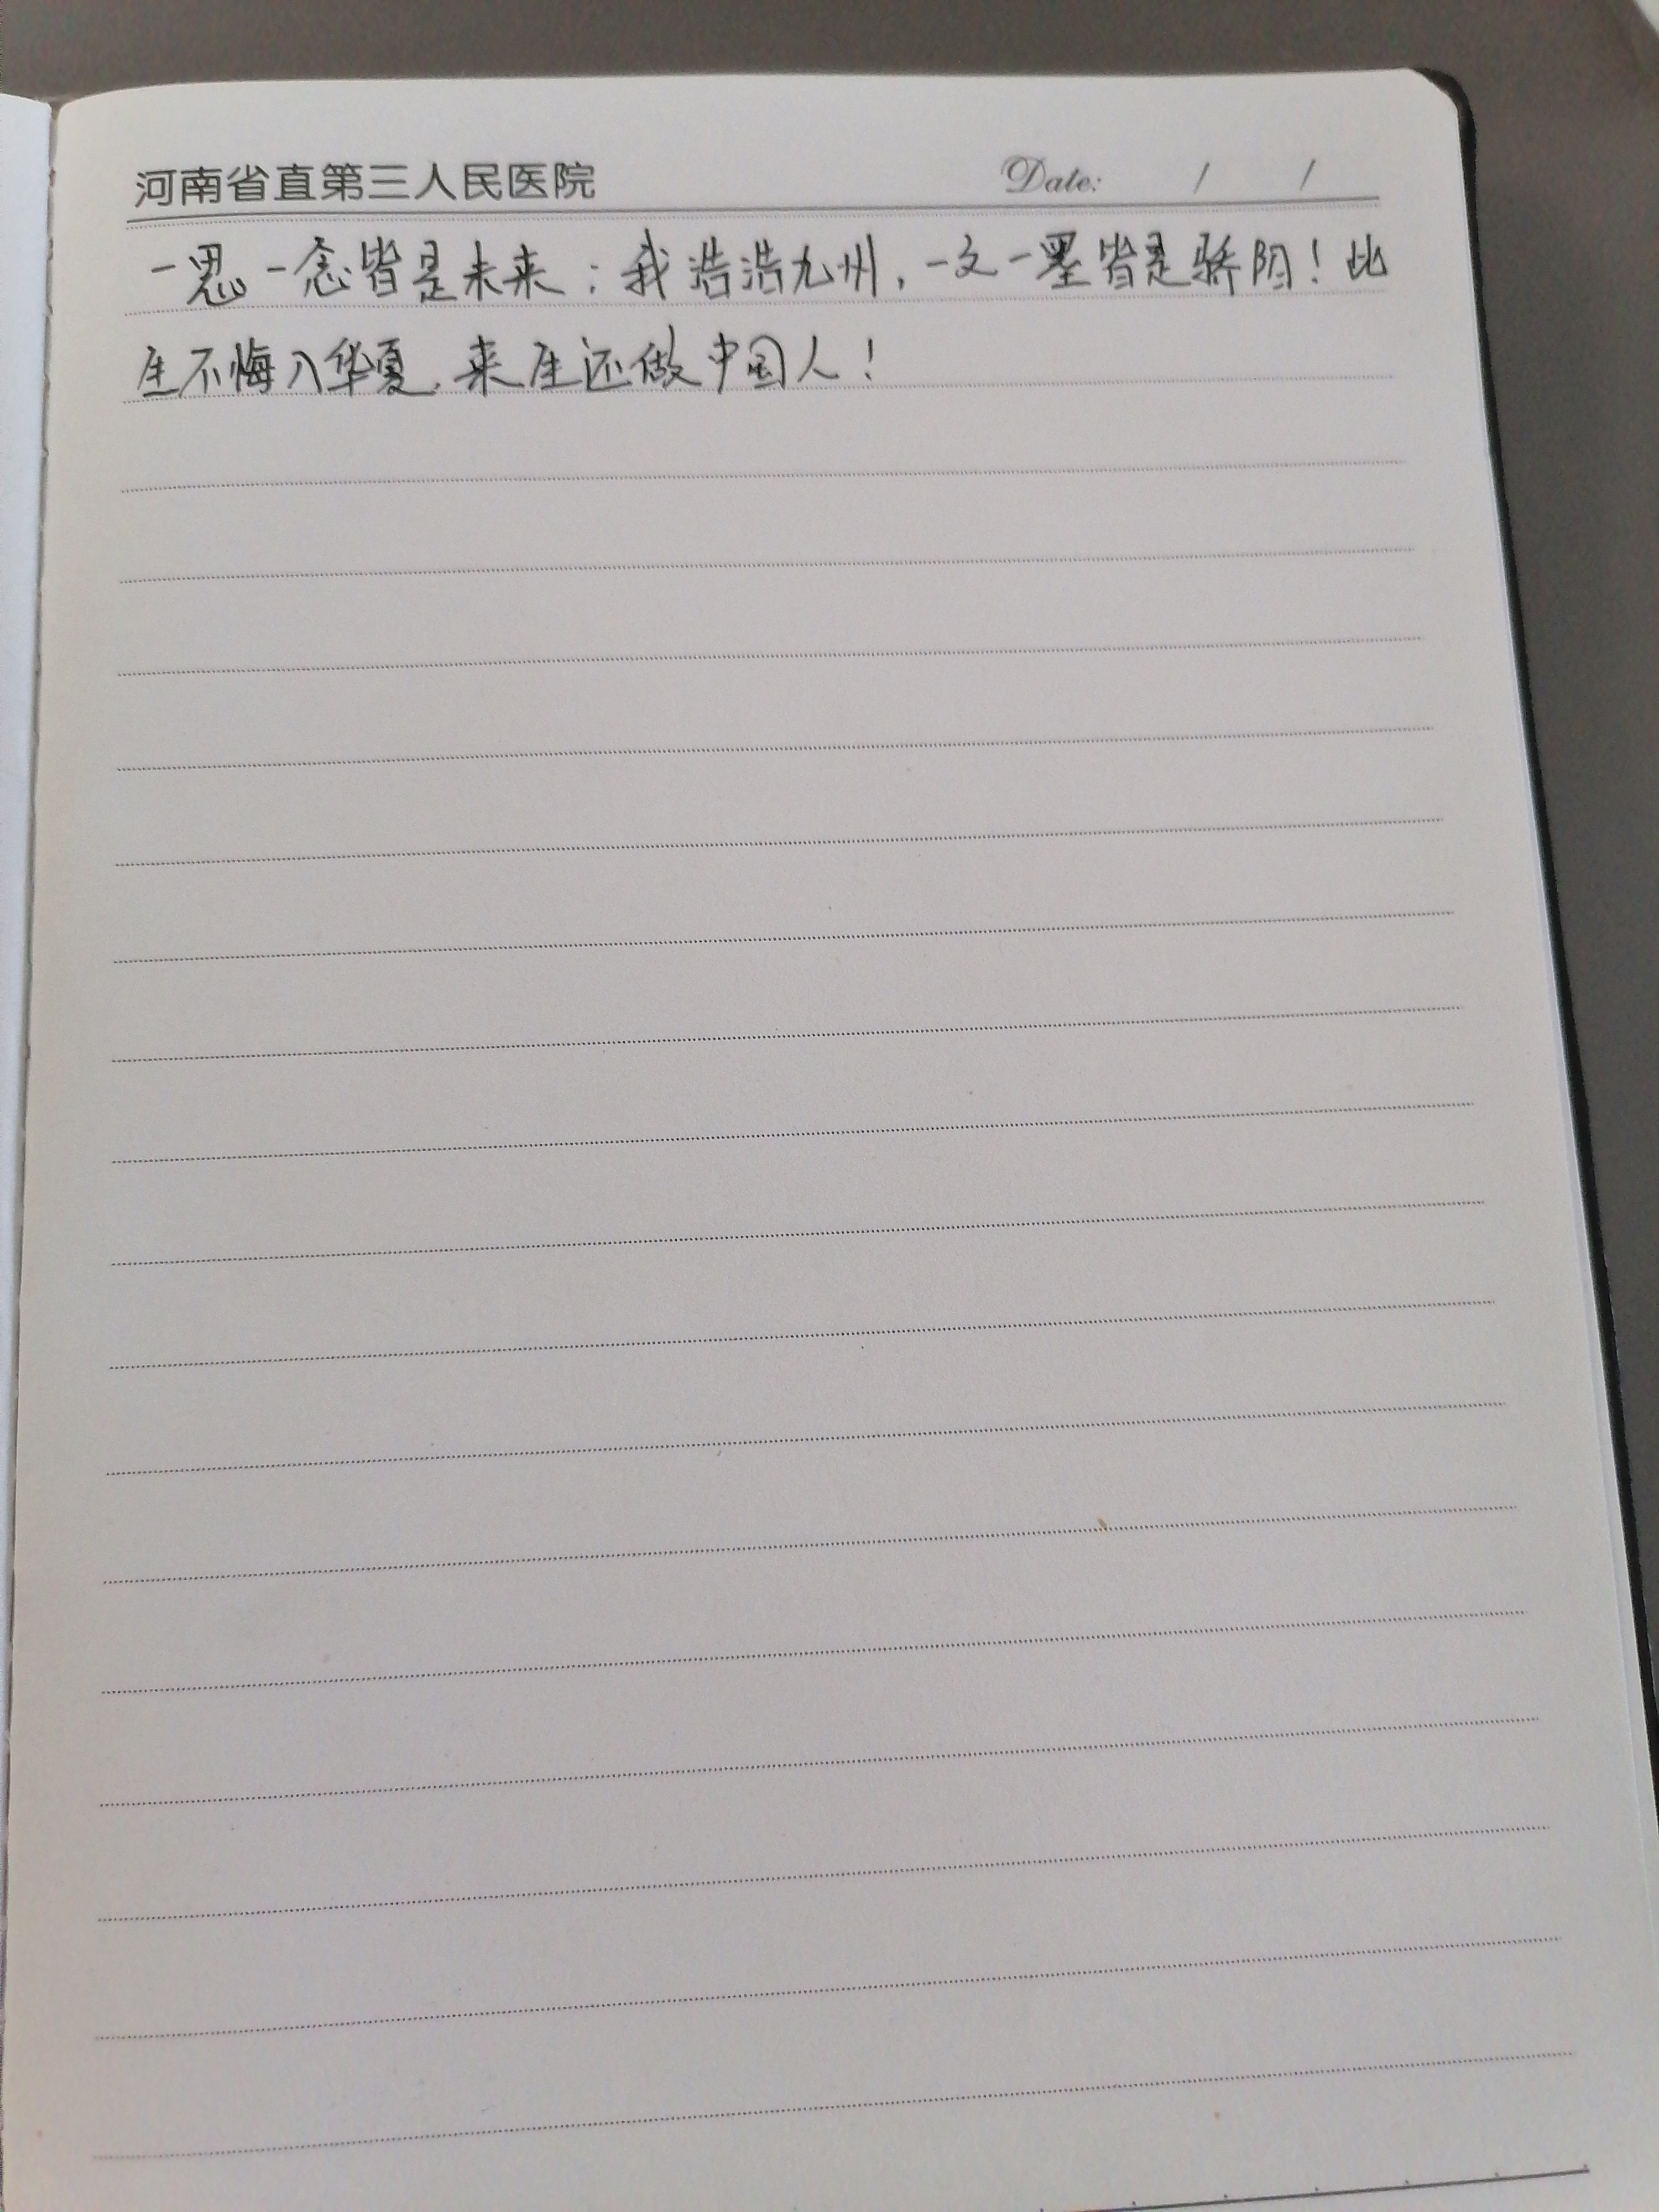 河南省直第三人民医院 Date: / /
一思一念皆是未来；我浩浩九州，一文一墨皆是骄阳！此
生不悔入华夏，来生还做中国人！